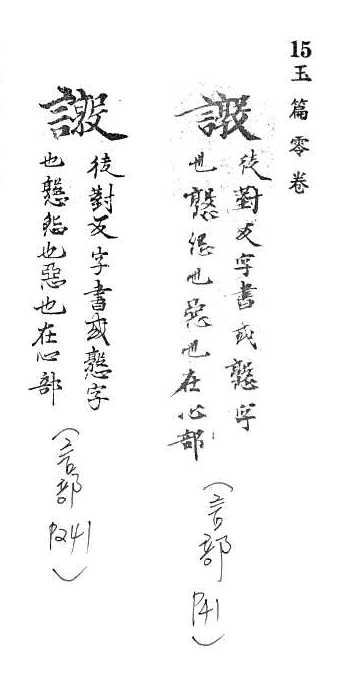 15玉篇零卷
徒對反字書或憝字
也憝怨也惡也在心部
（言部 P41）
徒對反字書或憝字
也憝怨也惡也在心部
（言部 P241）